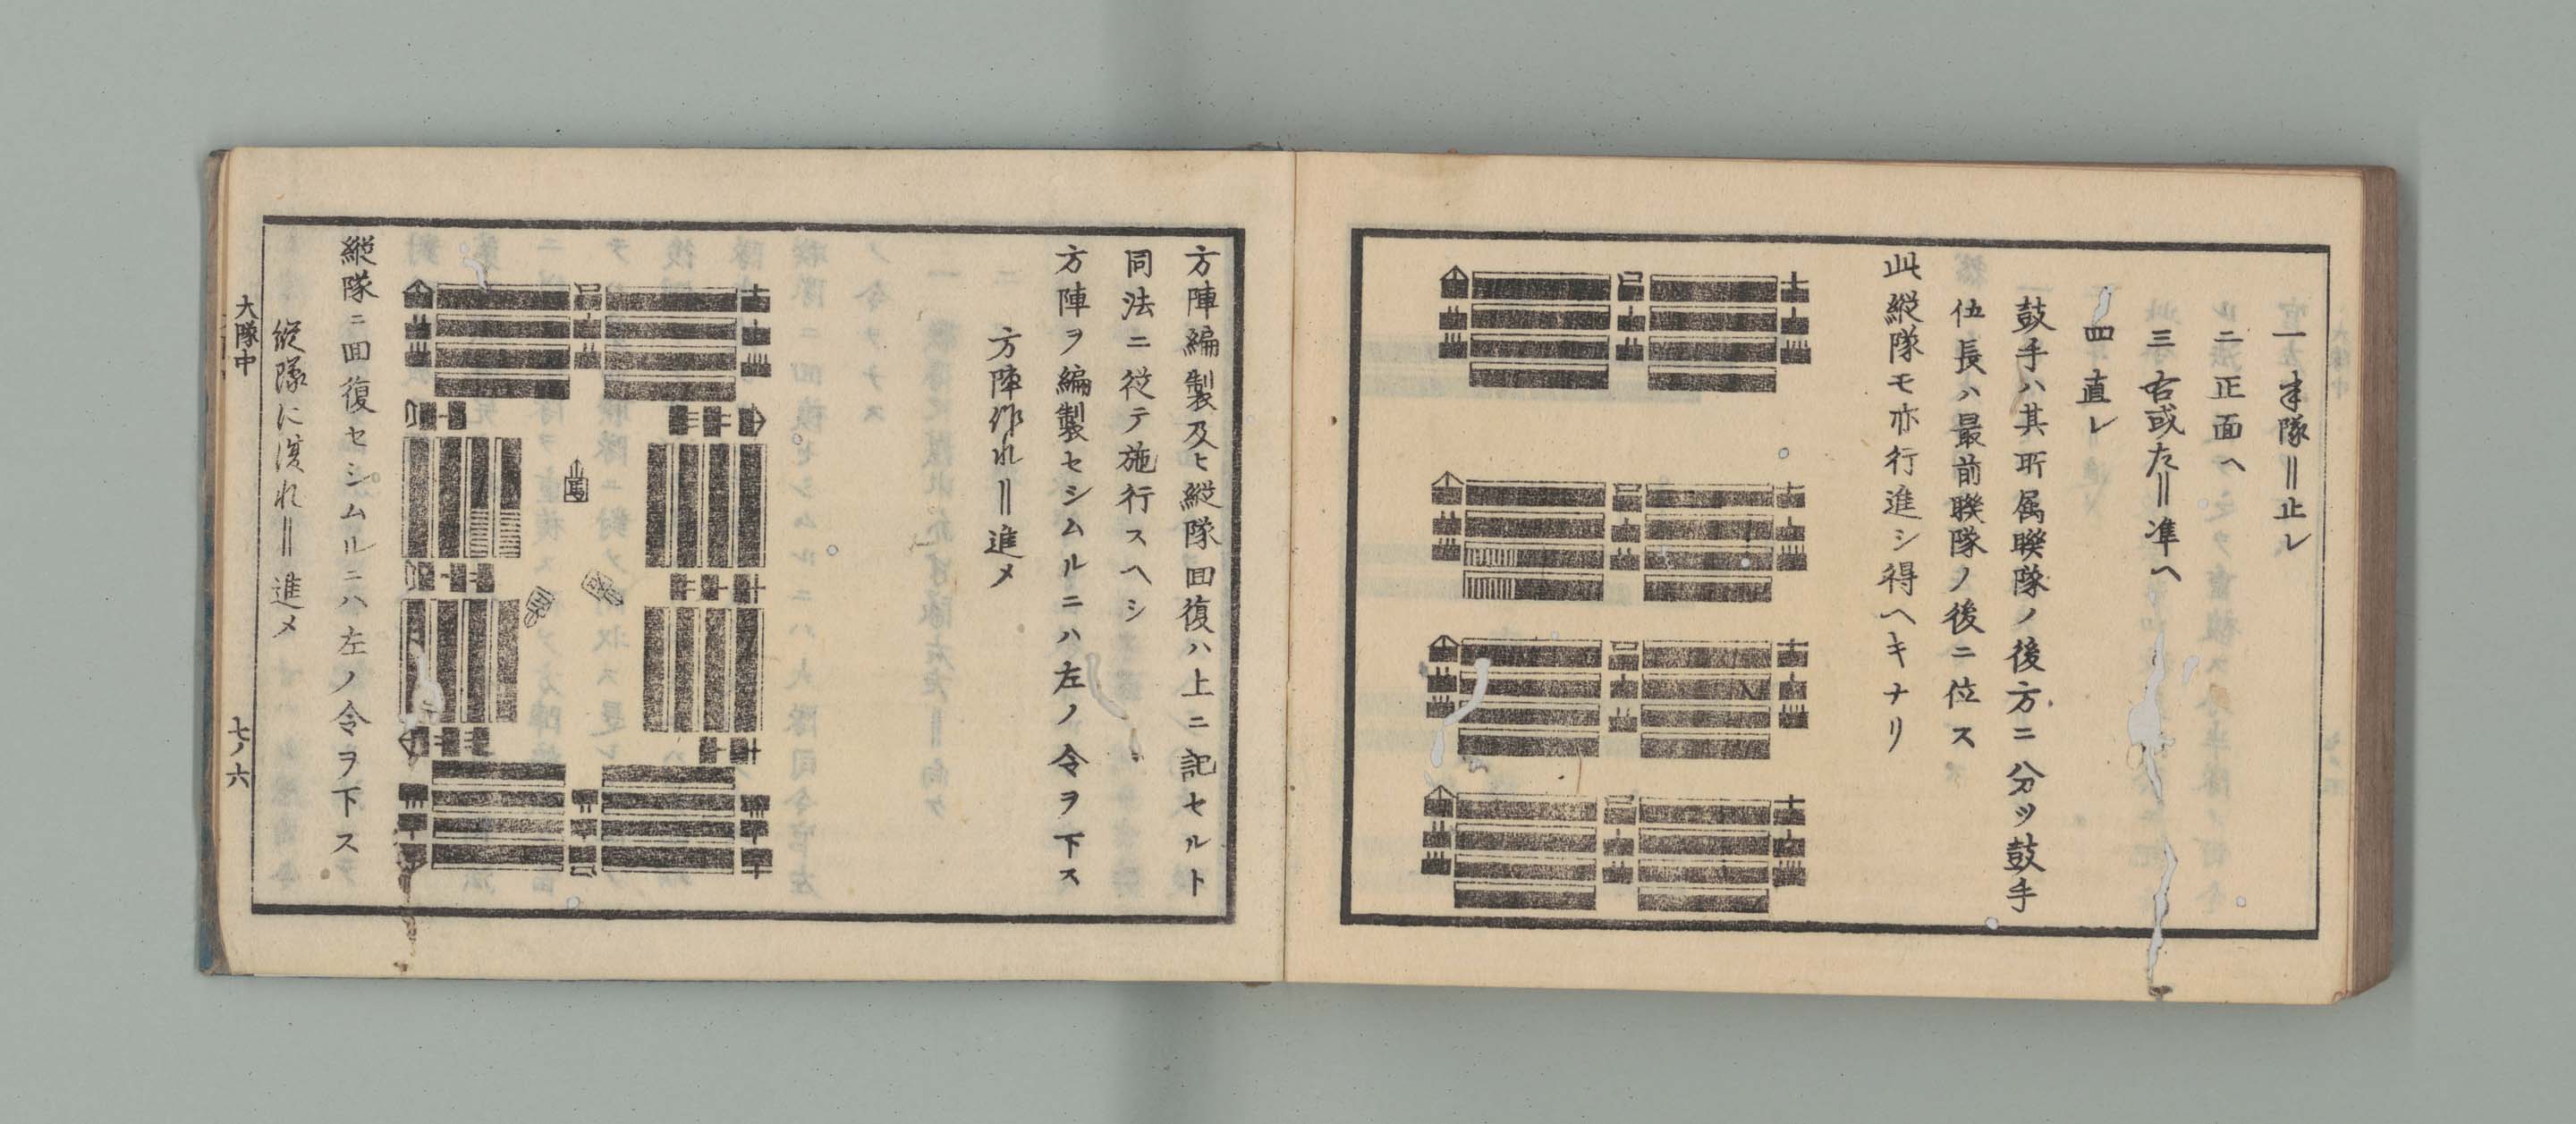 一 半隊‖止レ
二 正面へ
三 右或左‖準へ
四 直レ
鼓手ハ其所属聯隊ノ後方ニ分ツ鼓手
伍長ハ最前聯隊ノ後ニ位ス
此縦隊モ亦行進シ得ヘキナリ
方陣編製及ヒ縦隊回復ハ上ニ記セルト
同法ニ従テ施行スヘシ
方陣ヲ編製セシムルニハ左ノ令ヲ下ス
方陣作れ‖進メ
縦隊ニ回復セシムルニハ左ノ令ヲ下ス
縦隊に復れ‖進メ
大隊中
七ノ六